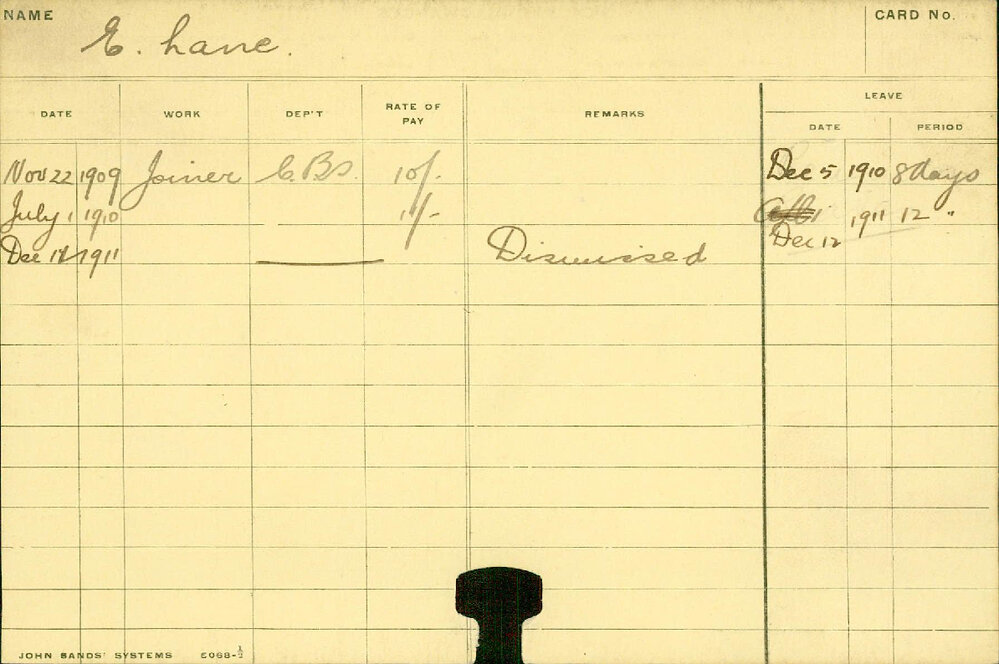 NAME
E. Lane.
CARD No.
DATE WORK DEP'T RATE OF PAY REMARKS LEAVE
DATE PERIOD
Nov 22 1909 Joiner C.Bs. 10/- Dec 5 1910 8 days
July 1 1910 11/- 1911 12 "
Dec 12
Dec 1911 Dismissed
JOHN SANDS' SYSTEMS